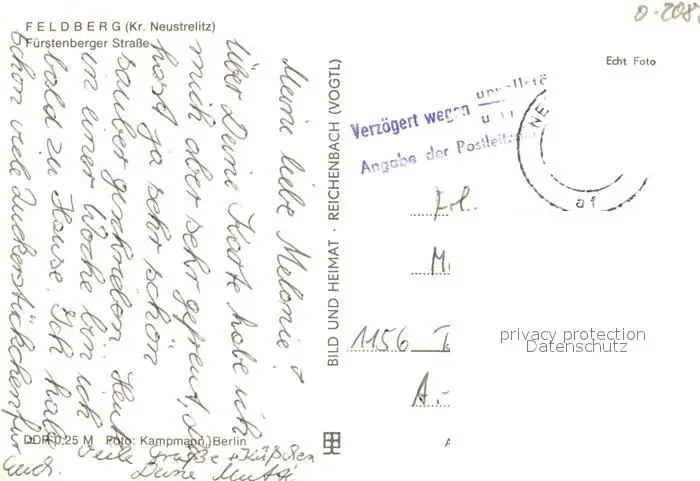 O-208
FELDBERG (Kr. Neustrelitz)
Fürstenberger Straße
Echt Foto
Meine liebe Melonie!
Über Deine Karte habe ich
mich aber sehr gefreut, du
hast ja sehr schön
sauber geschrieben. Heut
in einer Woche bin ich
bald zu Hause. Ich habe
schon viele Zuckerstückchen für
Euch.
Viele Grüße + Küßchen
Deine Mutti
BILD UND HEIMAT · REICHENBACH (VOGTL)
Verzögert wegen
Angabe der
NE
af
Frl.
M.
1156
A.-
privacy protection
Datenschutz
DDR 0,25 M Foto: Kampmann, Berlin